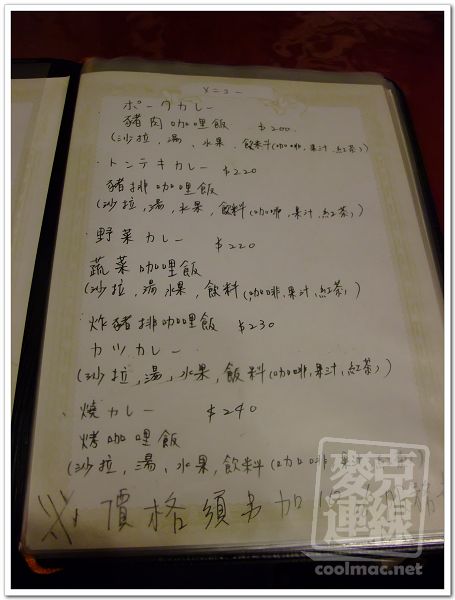 メニュー
ポークカレー
豬肉咖哩飯 $200
(沙拉,湯,水果,飲料(咖啡,果汁,紅茶)
・トンテキカレー $220
豬排咖哩飯
(沙拉,湯,水果,飲料(咖啡,果汁,紅茶))
・野菜カレー $220
蔬菜咖哩飯
(沙拉,湯,水果,飲料(咖啡,果汁,紅茶)
・炸豬排咖哩飯 $230
カツカレー
(沙拉,湯,水果,飲料(咖啡,果汁,紅茶)
・燒カレー $240
烤咖哩飯
(沙拉,湯,水果,飲料(咖啡,果汁
※價格須另加
麥克連線
coolmac.net